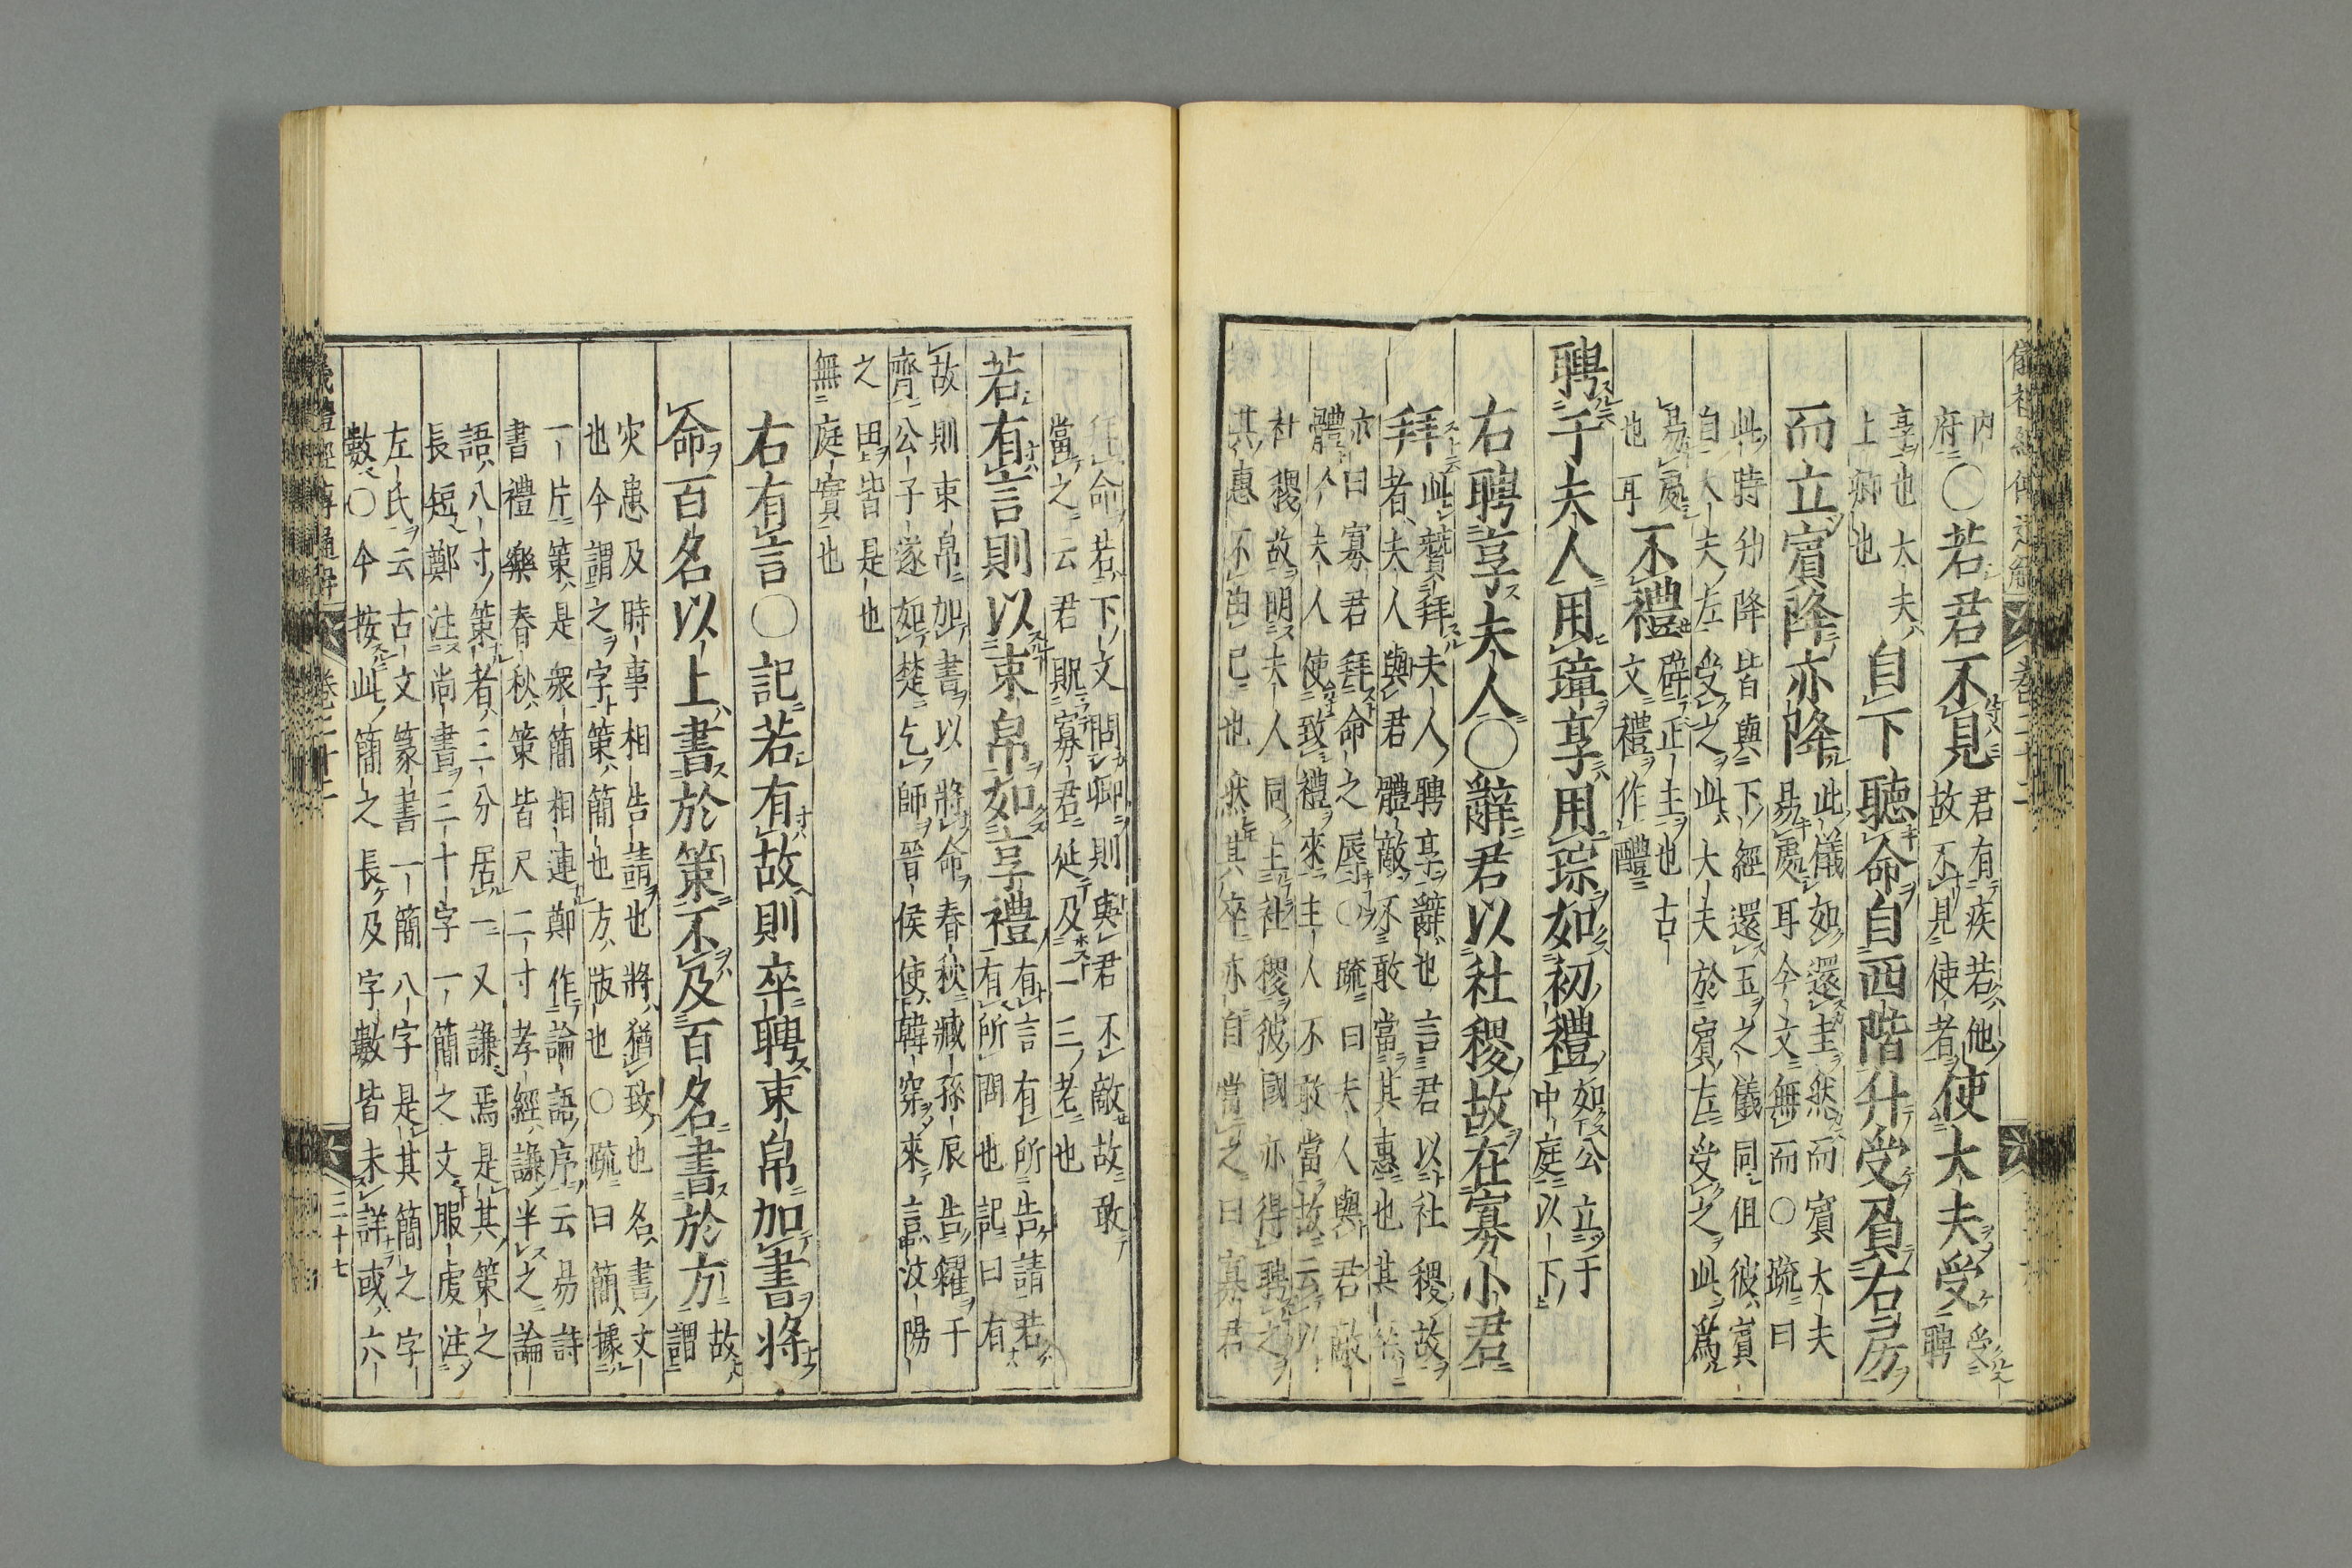 儀禮經傳通解 卷二十二
內
府〇若君不見君有疾若他
故不見使者使大夫受受
聘
享也大夫
上卿也自下聽命自西階升受負右房
而立賓降亦降此儀如還圭然而賓大夫
易處耳今文無而〇疏曰
此時勿降皆與下經還玉之儀同但彼賓
自大夫左受之此大夫於賓左受之此爲
易處
也耳不禮辟正主也古
文禮作醴
聘于夫人用璋享用琮如初禮如公立于
中庭以下
右聘享夫人〇辭君以社稷故在寡小君
拜此贊拜夫人聘享辭也言君以社稷故
者夫人與君體敵不敢當其惠也其
亦曰寡君拜命之辱〇疏曰夫人與君敵
體今夫人使致禮來主人不敢當故云以
社稷故明夫人同主社稷彼國亦得聘之
其惠不由己也然其卒亦自當之曰寡君
拜命若下文問卿則與君不敵故敢
當之云君貺寡君延及二三老也
若有言則以束帛如享禮有言有所告請若
有所問也記曰有
故則束帛加書以將命春秋臧孫辰告糴于
齊公子遂如楚乞師晉侯使韓穿來言汶陽
之田皆是也
無庭實也
右有言〇記若有故則卒聘束帛加書將
命百名以上書於策不及百名書於方故
謂
災患及時事相告請也將猶致也名書文
也今謂之字策簡也方版也〇疏曰簡據
一片策是衆簡相連鄭作論語序云易詩
書禮樂春秋策皆尺二寸孝經謙半之論
語八寸策者三分居一又謙焉是其策之
長短鄭注尚書三十字一簡之文服虔注
左氏云古文篆書一簡八字是其簡之字
數〇今按此簡之長及字數皆未詳或六
儀禮經傳通解 卷二十二 三十七